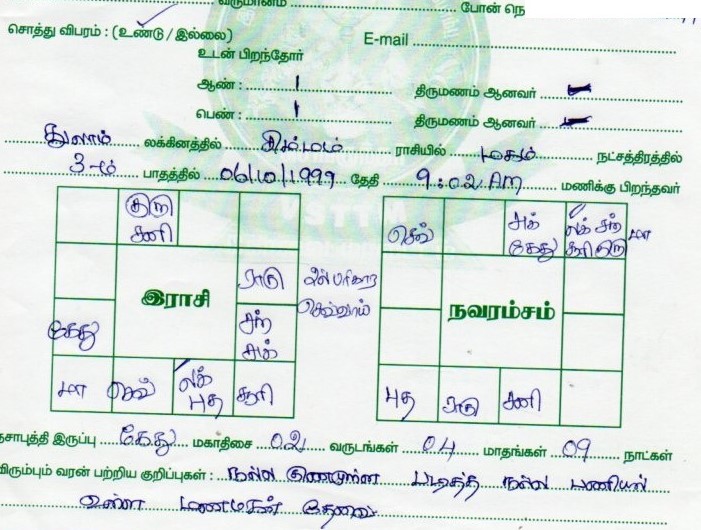 வருமானம் போன் நெ
சொத்து விபரம் : (உண்டு / இல்லை) E-mail
உடன் பிறந்தோர்
ஆண் : 1 திருமணம் ஆனவர் –
பெண் : 1 திருமணம் ஆனவர் –
துலாம் லக்கினத்தில் சிம்மம் ராசியில் மகம் நட்சத்திரத்தில்
3-ம் பாதத்தில் 06/10/1999 தேதி 9:02 AM மணிக்கு பிறந்தவர்
குரு
சனி
ராகு
இராசி
கேது
சந்
சுக்
மா செவ் லக் சூரி
புத
பரிகார
செவ்வாய்
செவ் சுக் லக் சந் மா
கேது சூரி குரு
நவாம்சம்
புத ராகு சனி
இருப்பு கேது மகாதிசை 02 வருடங்கள் 04 மாதங்கள் 09 நாட்கள்
விரும்பும் வரன் பற்றிய குறிப்புகள் : நல்ல குணமுள்ள படித்த நல்ல பணியில்
உள்ள மணமகன் தேவை